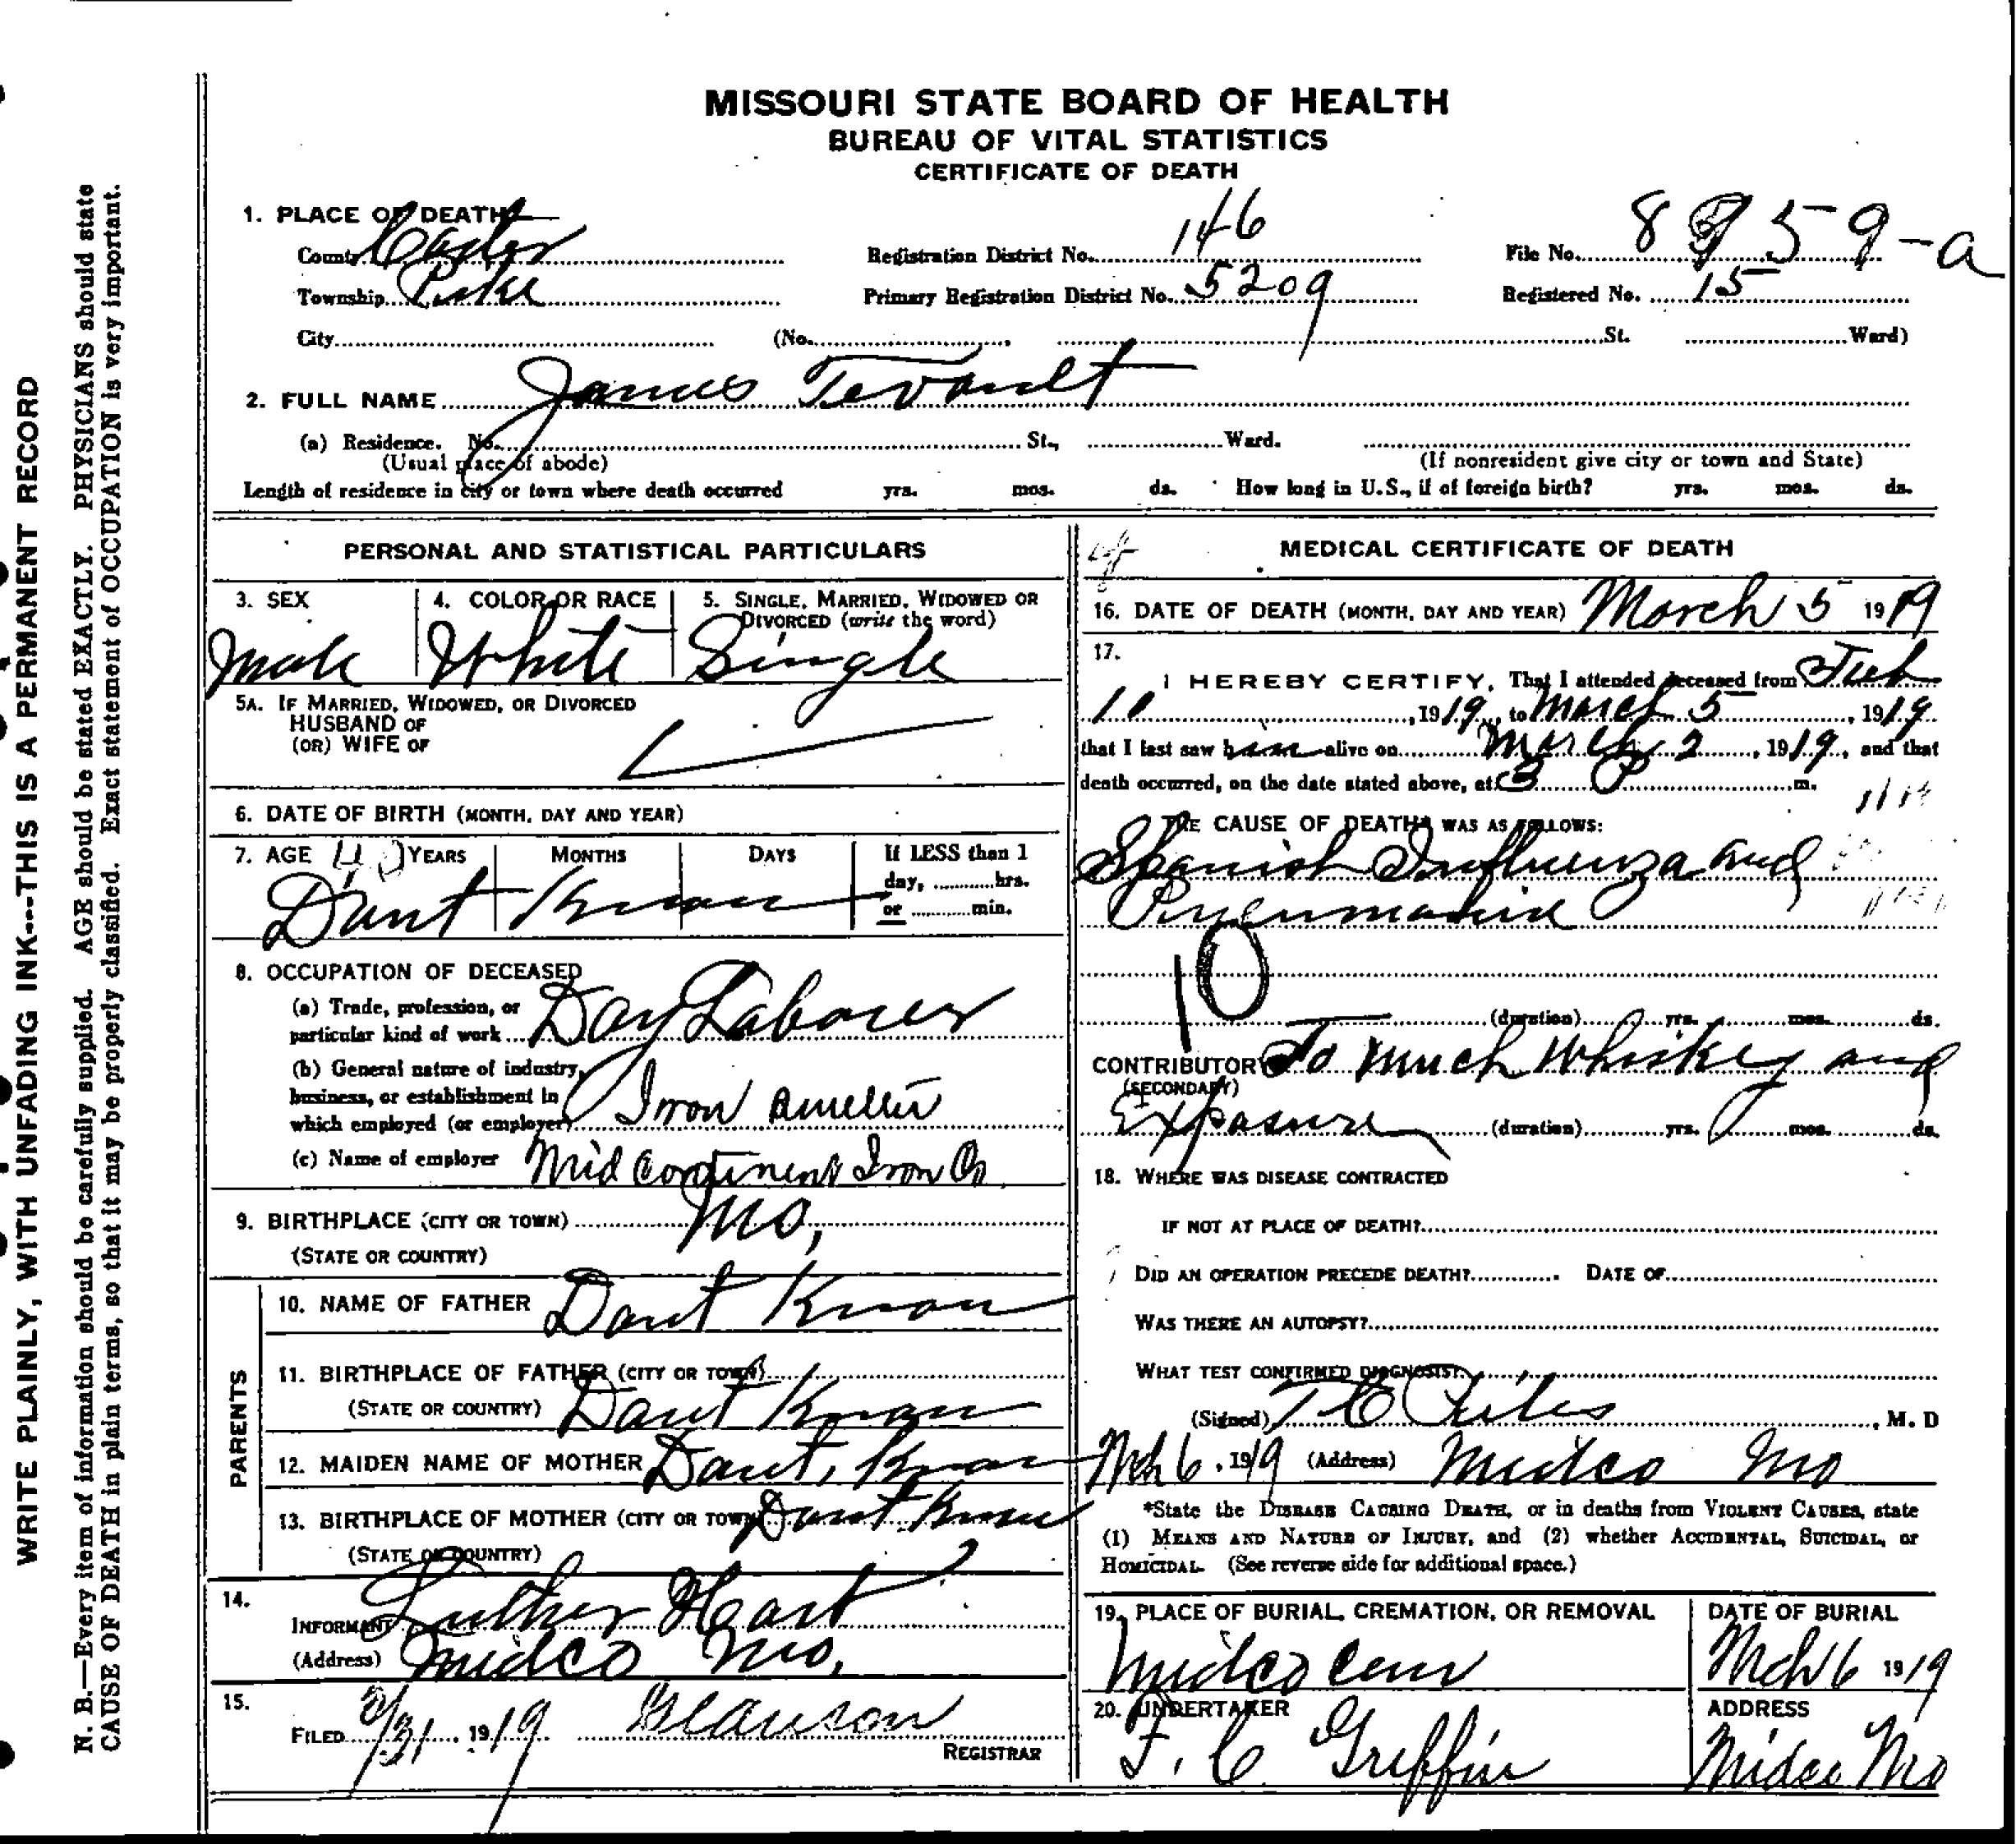 MISSOURI STATE BOARD OF HEALTH
BUREAU OF VITAL STATISTICS
CERTIFICATE OF DEATH
1. PLACE OF DEATH
County Carter Registration District No. 146 File No. 8959-a
Township Pike Primary Registration District No. 5209 Registered No. 15
City (No. , St. Ward)
2. FULL NAME James Tevault
(a) Residence. No. St., Ward.
(Usual place of abode) (If nonresident give city or town and State)
Length of residence in city or town where death occurred yrs. mos. ds. How long in U.S., if of foreign birth? yrs. mos. ds.
PERSONAL AND STATISTICAL PARTICULARS
3. SEX 4. COLOR OR RACE 5. SINGLE, MARRIED, WIDOWED OR
DIVORCED (write the word)
Male White Single
5A. IF MARRIED, WIDOWED, OR DIVORCED
HUSBAND OF
(OR) WIFE OF
6. DATE OF BIRTH (MONTH, DAY AND YEAR)
7. AGE 40 YEARS MONTHS DAYS If LESS than 1
day, hrs.
or min.
Dant Know
8. OCCUPATION OF DECEASED
(a) Trade, profession, or
particular kind of work Day Laborer
(b) General nature of industry,
business, or establishment in
which employed (or employer) Iron Smelter
(c) Name of employer Mid Continent Iron Co
9. BIRTHPLACE (CITY OR TOWN) Mo,
(STATE OR COUNTRY)
PARENTS
10. NAME OF FATHER Dant Know
11. BIRTHPLACE OF FATHER (CITY OR TOWN)
(STATE OR COUNTRY) Dant Know
12. MAIDEN NAME OF MOTHER Dant, Know
13. BIRTHPLACE OF MOTHER (CITY OR TOWN) Dant Know
(STATE OR COUNTRY)
14.
INFORMANT Luther Hart
(Address) Midco Mo,
15.
FILED 3/31, 1919 Clauson
REGISTRAR
MEDICAL CERTIFICATE OF DEATH
16. DATE OF DEATH (MONTH, DAY AND YEAR) March 5 1919
17.
I HEREBY CERTIFY, That I attended deceased from Feb
10, 1919, to March 5, 1919
that I last saw him alive on March 2, 1919, and that
death occurred, on the date stated above, at 3 P m.
THE CAUSE OF DEATH* WAS AS FOLLOWS:
Spanish Influenza and
Pneumonia
10
(duration) yrs. mos. ds.
CONTRIBUTORY To Much Whiskey and
(SECONDARY)
Exposure (duration) yrs. mos. ds.
18. WHERE WAS DISEASE CONTRACTED
IF NOT AT PLACE OF DEATH?
DID AN OPERATION PRECEDE DEATH? DATE OF
WAS THERE AN AUTOPSY?
WHAT TEST CONFIRMED DIAGNOSIS?
(Signed) T C , M. D
Mch 6, 1919 (Address) Midco Mo
*State the DISEASE CAUSING DEATH, or in deaths from VIOLENT CAUSES, state
(1) MEANS AND NATURE OF INJURY, and (2) whether ACCIDENTAL, SUICIDAL, or
HOMICIDAL. (See reverse side for additional space.)
19. PLACE OF BURIAL, CREMATION, OR REMOVAL DATE OF BURIAL
Midco Cem Mch 6 1919
20. UNDERTAKER ADDRESS
F. C Griffin Midco Mo
WRITE PLAINLY, WITH UNFADING INK---THIS IS A PERMANENT RECORD
N. B.—Every item of information should be carefully supplied. AGE should be stated EXACTLY. PHYSICIANS should state
CAUSE OF DEATH in plain terms, so that it may be properly classified. Exact statement of OCCUPATION is very important.